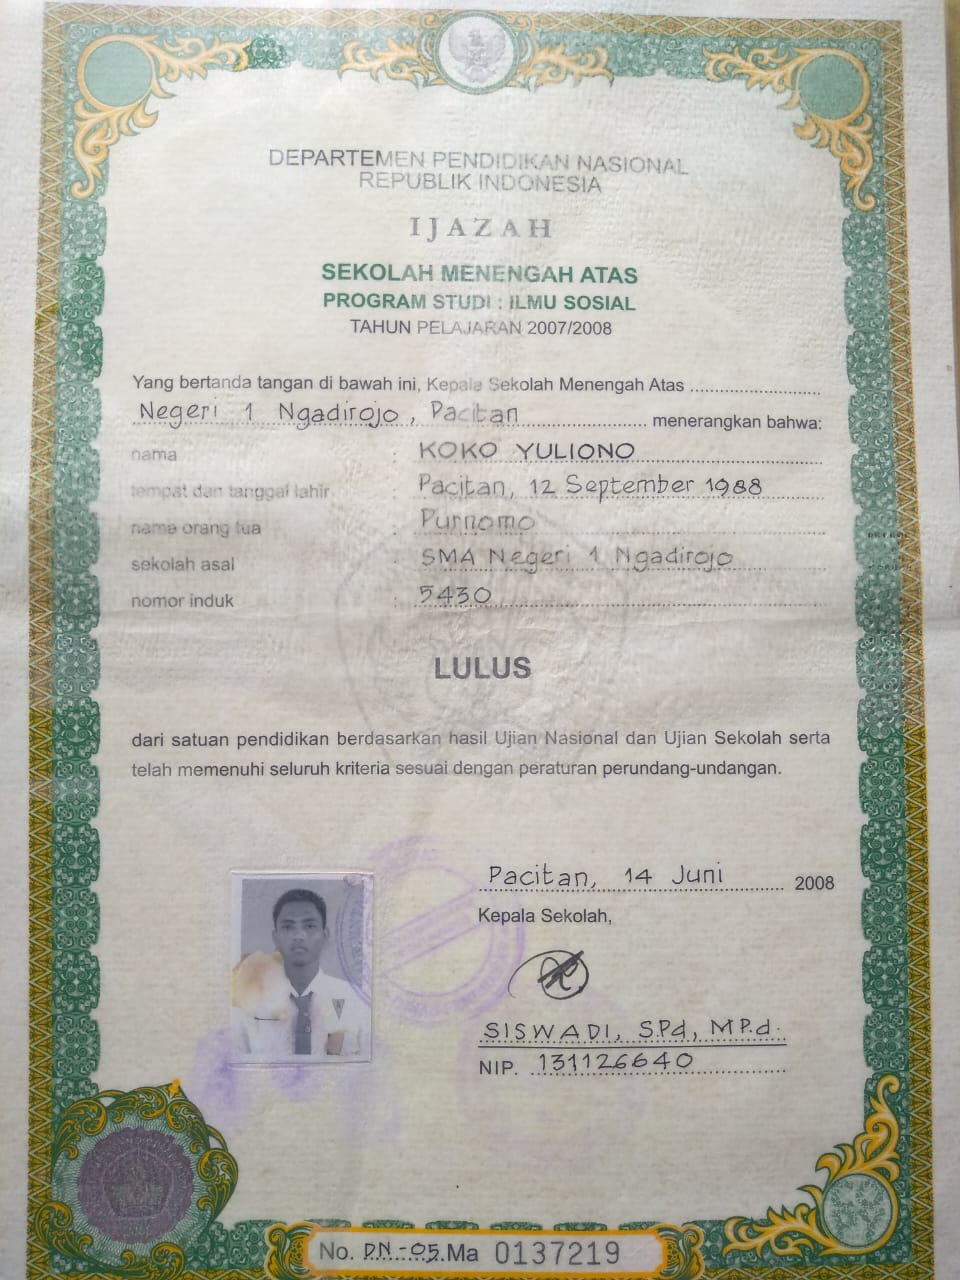 DEPARTEMEN PENDIDIKAN NASIONAL
REPUBLIK INDONESIA
IJAZAH
SEKOLAH MENENGAH ATAS
PROGRAM STUDI : ILMU SOSIAL
TAHUN PELAJARAN 2007/2008
Yang bertanda tangan di bawah ini, Kepala Sekolah Menengah Atas
Negeri 1 Ngadirojo, Pacitan menerangkan bahwa:
nama : KOKO YULIONO
tempat dan tanggal lahir : Pacitan, 12 September 1988
nama orang tua : Purnomo
sekolah asal : SMA Negeri 1 Ngadirojo
nomor induk : 5430
LULUS
dari satuan pendidikan berdasarkan hasil Ujian Nasional dan Ujian Sekolah serta
telah memenuhi seluruh kriteria sesuai dengan peraturan perundang-undangan.
Pacitan, 14 Juni 2008
Kepala Sekolah,
SISWADI, S.Pd, M.Pd.
NIP. 131126640
No. DN-05.Ma 0137219